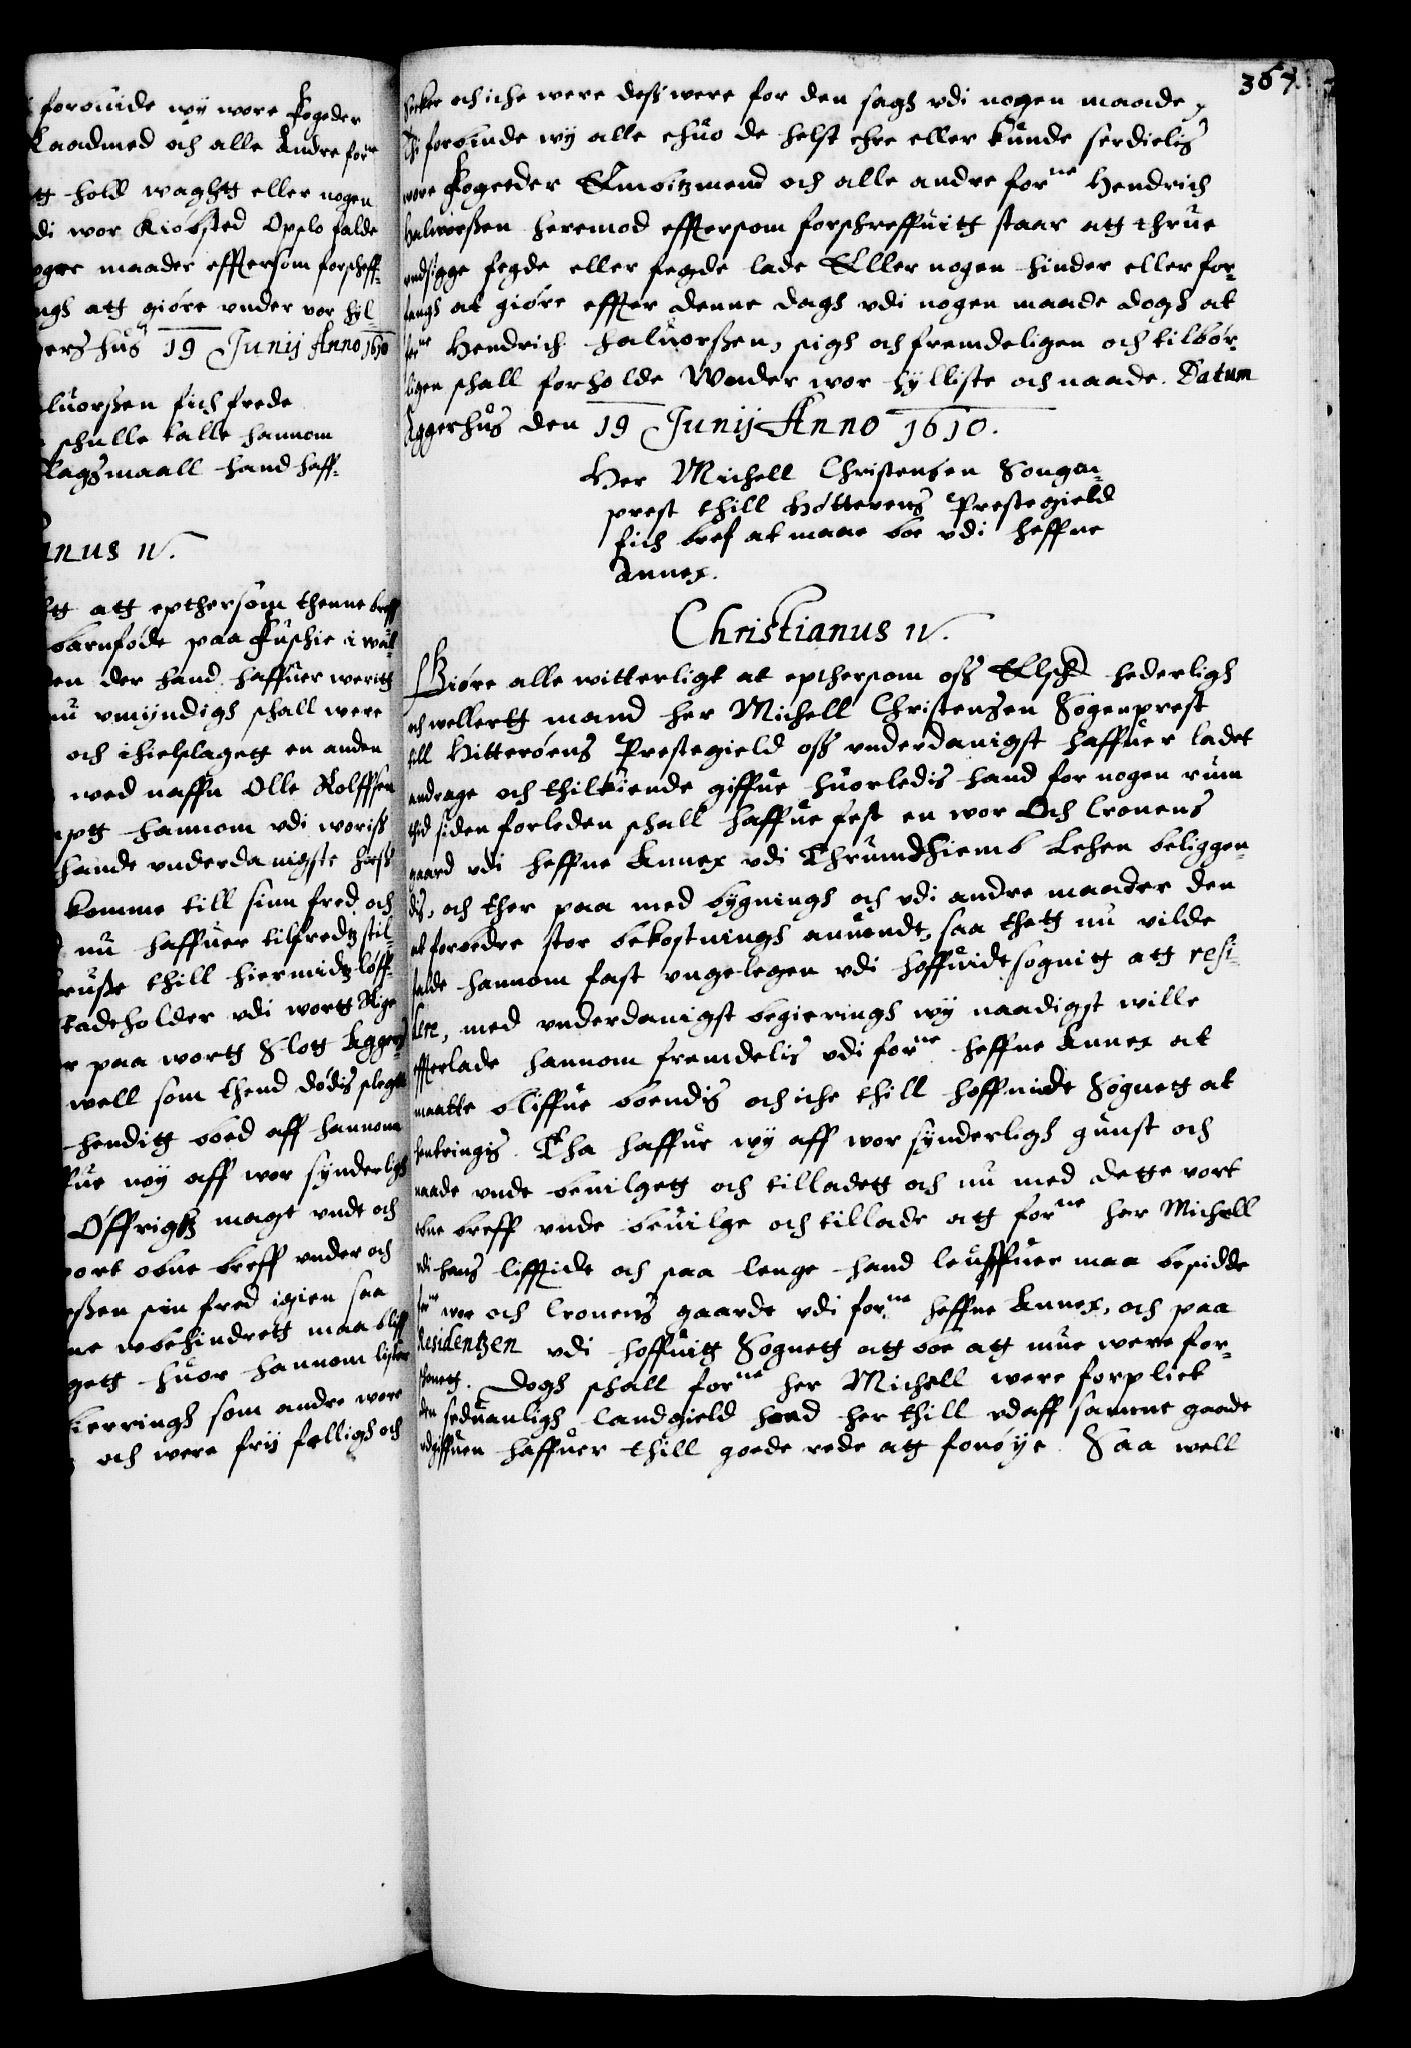 forbiude wy wore Fogeder
Raadmed och alle Andre forne
hold waghtt eller nogen
di wor Kiöbsted Opslo falde
maader effttersom forscheff-
att giöre vnder vor hyl-
hus 19 Junij Anno 1610
fich frede
schulle talle hannom
klagsmaall hand haff-
IV.
att epthersom thenne breff
barnföde paa
der hand haffuer weritt
vmijndigh schall were
och ihielslagett en anden
wed naffn Olle Rolffsen
hannom vdi woriss
vnderdanigste
komme till sinn fred och
nu haffuer tilfredtz stil-
thill hiermidtz
vdi wortt Rige
paa wortt Slott Agger-
well som thend dödis slegtt
boed aff hannom
wij aff wor synderligh
magt vndt och
vort obne breff vnder och
sin fred igien saa
wbehindrett maa bliff
huor hannom lyster
som andre wore
och were frij felligh och
364.
och iche were dess were for den sagh vdi nogen maade
Thi forbiude wij alle ehuo de helst ehre eller kunde serdielis
wore Fogeeder Embitzmend och alle andre forne Hendrich
Haluorssen heremod effttersom forschreffuitt staar att thrue
vndsigge fegde eller fegde lade Eller nogen hinder eller for-
fangh at giöre effter denne dagh vdi nogen maade dogh at
forne Hendrich Haluorssen, sigh och fremdeligen och tilbör-
ligen schall forholde Vnder wor hylliste och naade. Datum
Aggerhus den 19 Junij Anno 1610.
Her Michell Christensen Songen-
prest thill Hötterens Prestegield
fich bref at maae boe vdi Heffne
Annex.
Christianus IV.
Giöre alle witterligt at epthersom oss Elsch hederligh
och wellertt mand her Michell Christensen Sogenprest
till Hitteröens Prestegield oss vnderdanigst haffuer ladet
andrage och thilkiende giffue huorledis hand for nogen rum
thid siden forleden schall haffue fest en wor Och Cronens
gaard vdi Heffne Annex vdi Thrumdhiemb Lehen beliggen-
dis, och ther paa med bygningh och vdi andre maader den
at forbedre stor bekostningh anuendt, saa thett nu vilde
falde hannom fast vngelegen vdi hoffuidtsognitt att resi-
dere, med vnderdanigst begieringh wij naadigst wille
effterlade hannom fremdelis vdi forne Heffne Annex at
maatte bliffue boendis och iche thill hoffuidt Sognett at
hentringis. Tha haffue wij aff wor synderligh gunst och
naade vnde beuilgett och tilladett och nu med dette vort
obne breff vnde beuilge och tillade att forne her Michell
vdi hans lifftide och saa lenge hand leuffuer maa besidde
forne wor och Cronens gaarde vdi forne Heffne Annex, och paa
Residentzen vdi hoffuitt Sognett att boe att mue were for-
schonett. Dogh schall forne her Michell were forpliet
den seduanligh Landgield hand her thill vdaff samme gaade
vdgiffuen haffuer thill goede rede att fornöije. Saa well